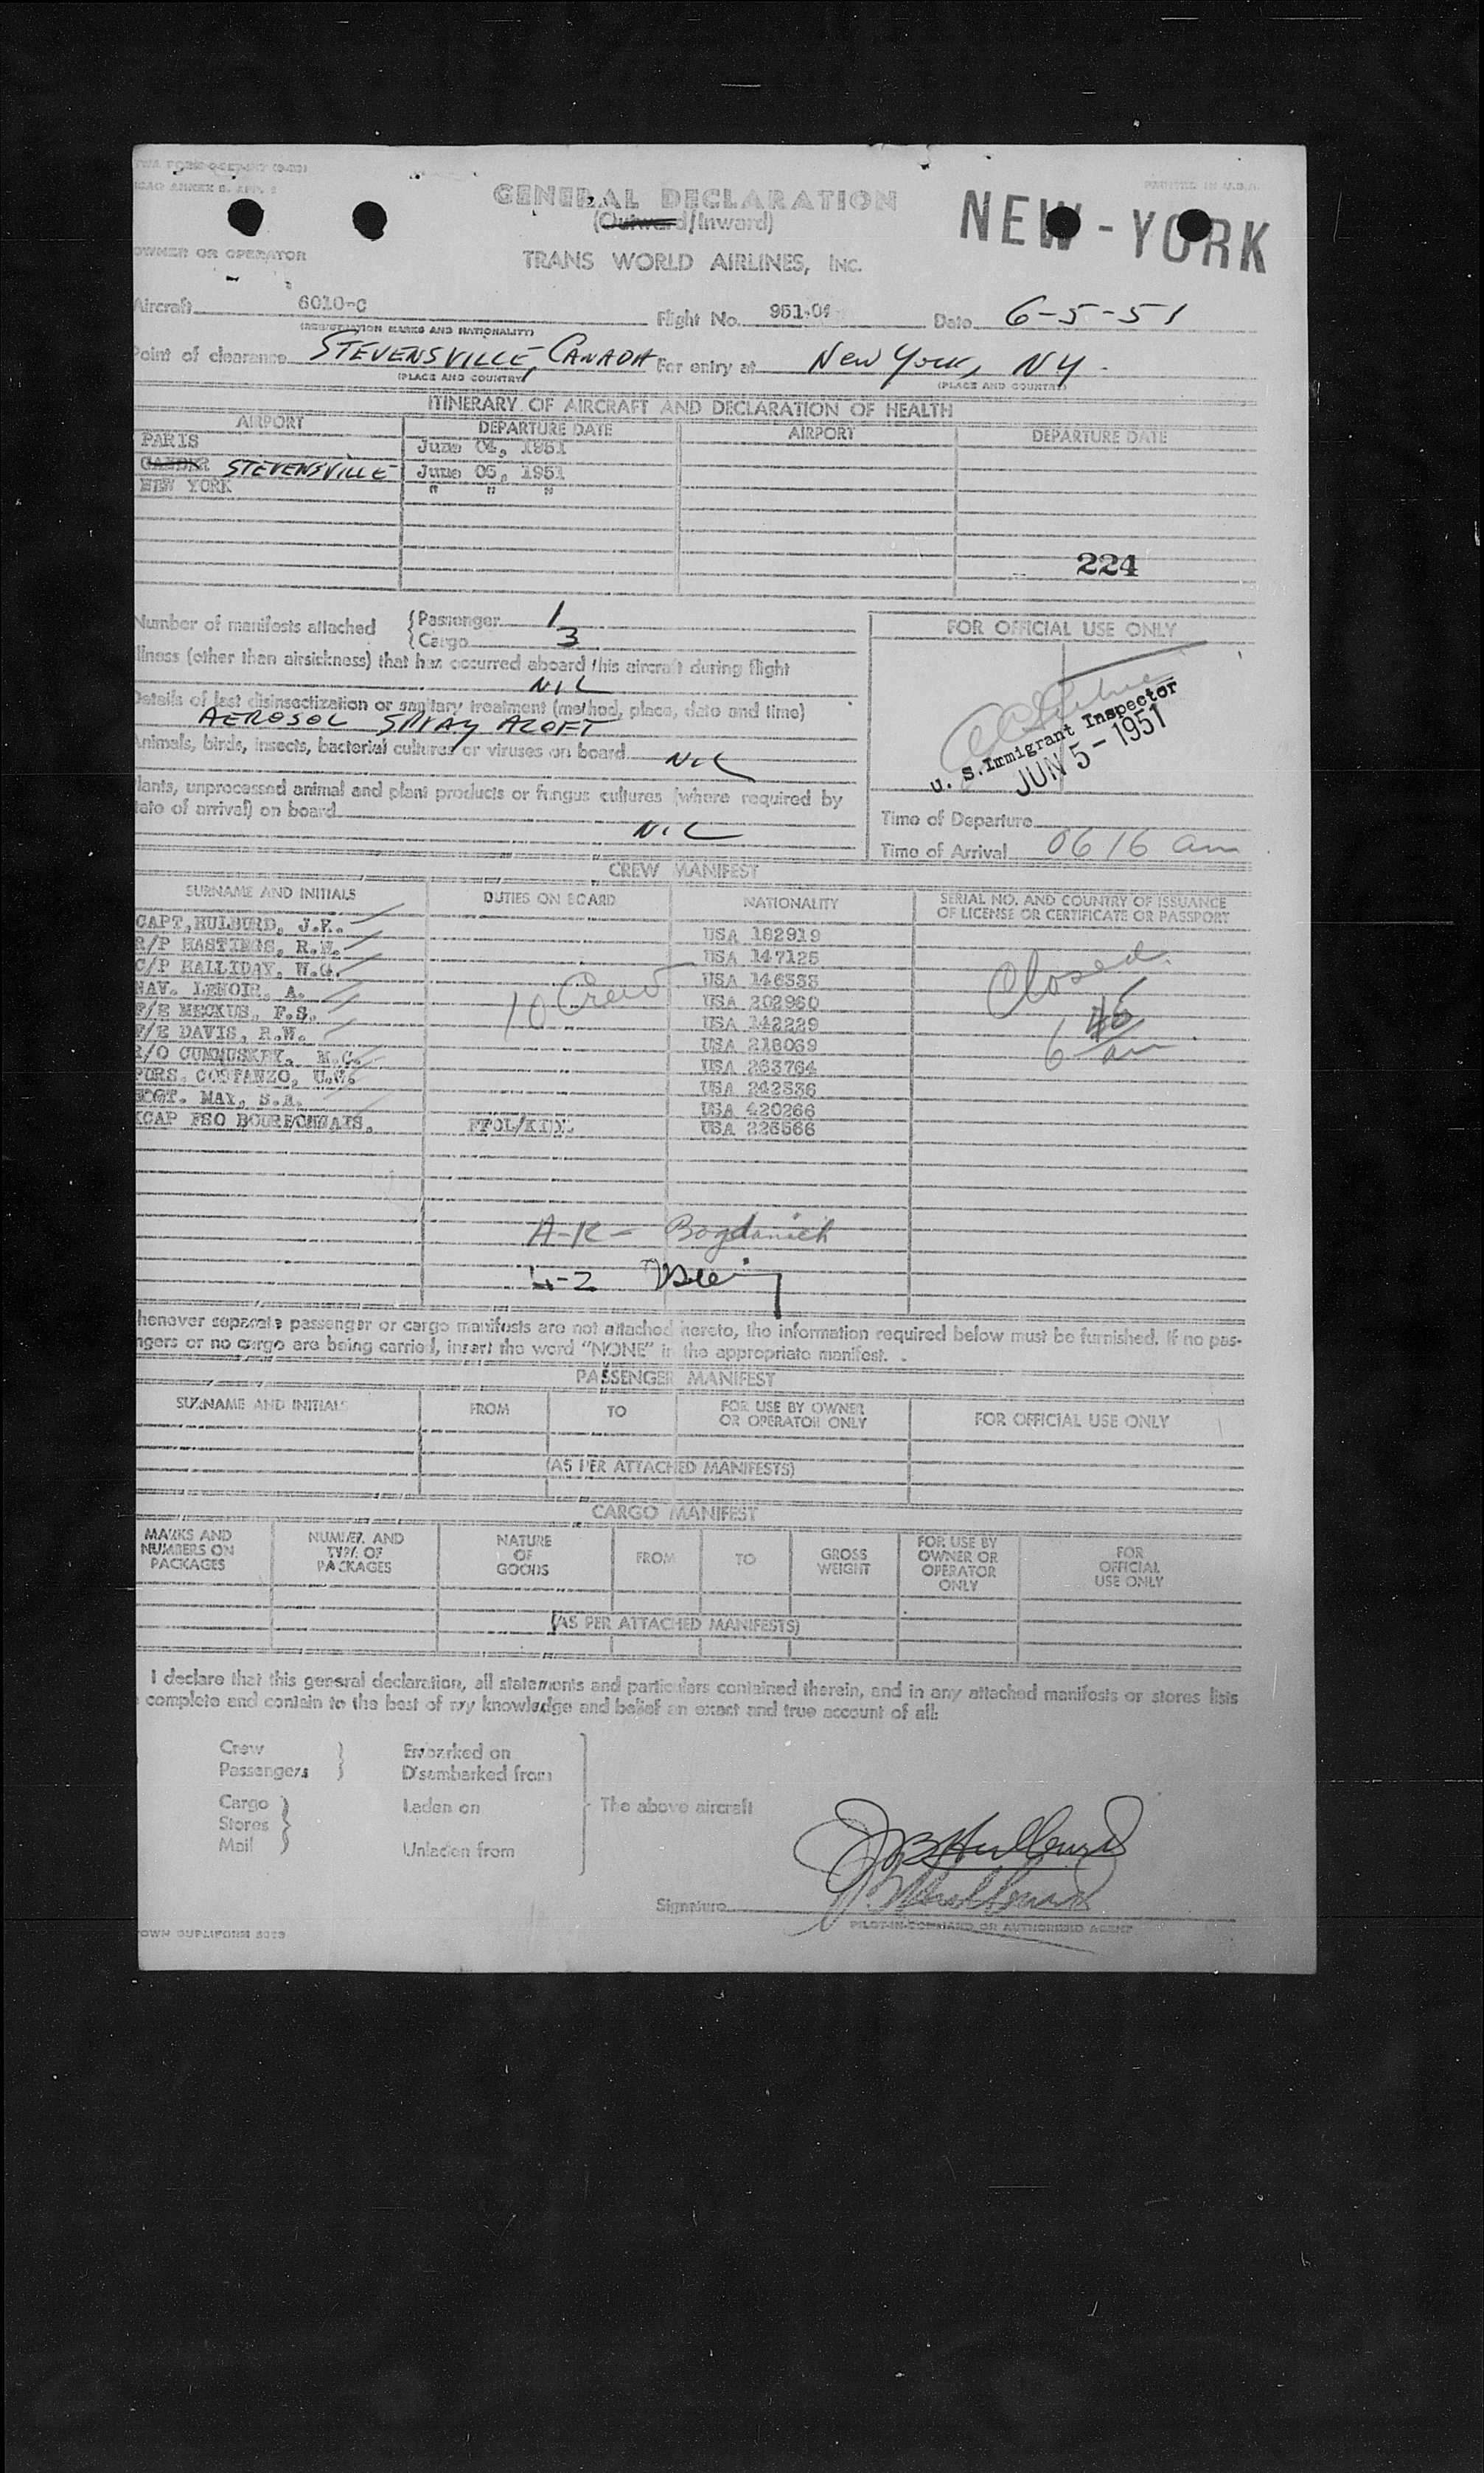 PRINTED IN U.S.A.
GENERAL DECLARATION
(Outward/Inward)
NEW-YORK
OWNER OR OPERATOR
TRANS WORLD AIRLINES, INC.
Aircraft 6010-C Flight No. 951-04 Date 6-5-51
(REGISTRATION MARKS AND NATIONALITY)
Point of clearance STEVENSVILLE, CANADA For entry at New York, NY.
(PLACE AND COUNTRY) (PLACE AND COUNTRY)
ITINERARY OF AIRCRAFT AND DECLARATION OF HEALTH
AIRPORT DEPARTURE DATE AIRPORT DEPARTURE DATE
PARIS June 04, 1951
GANDER STEVENSVILLE June 05, 1951
NEW YORK " " "
224
Number of manifests attached {Passenger 1
{Cargo 3
FOR OFFICIAL USE ONLY
llness (other than airsickness) that has occurred aboard this aircraft during flight
NIL
Details of last disinsectization or sanitary treatment (method, place, date and time)
AEROSOL SPRAY ALOFT
Animals, birds, insects, bacterial cultures or viruses on board NIL
U. S. Immigrant Inspector
JUN 5 - 1951
lants, unprocessed animal and plant products or fungus cultures (where required by
tate of arrival) on board
NIL
Time of Departure
Time of Arrival 0616 am
CREW MANIFEST
SURNAME AND INITIALS DUTIES ON BOARD NATIONALITY SERIAL NO. AND COUNTRY OF ISSUANCE
OF LICENSE OR CERTIFICATE OR PASSPORT
CAPT, HULBURD, J.F. USA 182919
R/P HASTINGS, R.M. USA 147125
C/P HALLIDAY, W.G. USA 146333
NAV. LENOIR, A. USA 202960
F/E MECKUS, F.S. USA 142229
F/E DAVIS, R.W. USA 218069
R/O CUMMUSKEY, M.G. USA 263764
PURS. COSTANZO, U.G. USA 242536
HOGT. MAY, S.A. USA 420266
USA 226566
10 Crew
Closed
6 46 am
A-R- Bogdanich
henever separate passenger or cargo manifests are not attached hereto, the information required below must be furnished. If no pas-
ngers or no cargo are being carried, insert the word "NONE" in the appropriate manifest.
PASSENGER MANIFEST
SURNAME AND INITIALS FROM TO FOR USE BY OWNER
OR OPERATOR ONLY FOR OFFICIAL USE ONLY
(AS PER ATTACHED MANIFESTS)
CARGO MANIFEST
MARKS AND
NUMBERS ON
PACKAGES
NUMBER AND
TYPE OF
PACKAGES
NATURE
OF
GOODS
FROM
TO
GROSS
WEIGHT
FOR USE BY
OWNER OR
OPERATOR
ONLY
FOR
OFFICIAL
USE ONLY
(AS PER ATTACHED MANIFESTS)
I declare that this general declaration, all statements and particulars contained therein, and in any attached manifests or stores lists
complete and contain to the best of my knowledge and belief an exact and true account of all:
Crew } Embarked on
Passengers } Disembarked from
Cargo } Laden on The above aircraft
Stores
Mail } Unladen from
J B Hulburd
Signature
PILOT-IN-COMMAND OR AUTHORIZED AGENT